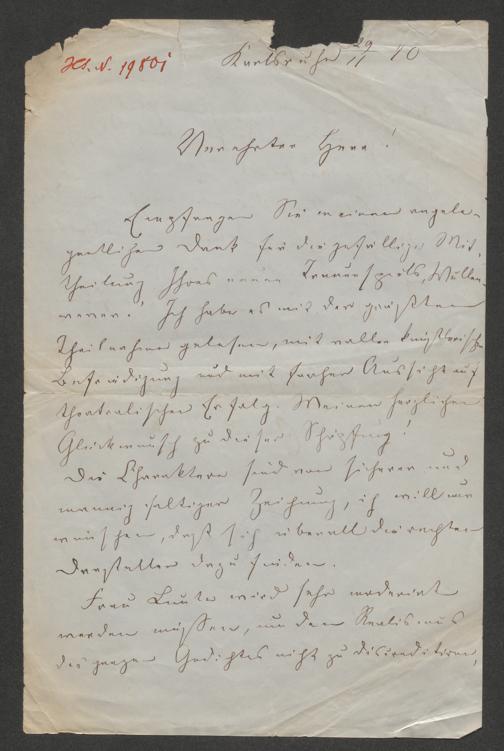 Hs. N. 19801
Karlsruhe 29/11 40
Verehrter Herr!
Empfangen Sie meinen angele-
gentlichen Dank für die gefällige Mit-
theilung Ihres neuen Trauerspiels, Wullen-
wever! Ich habe es mit der größten
Theilnahme gelesen, mit voller künstlerischer
Befriedigung und mit froher Aussicht auf
theatralischen Erfolg. Meinen herzlichen
Glückwunsch zu dieser Schöpfung!
Die Charaktere sind von sicherer und
mannigfaltiger Zeichnung, ich will nur
wünschen, daß sich überall die rechten
Darsteller dazu finden.
Frau wird sehr moderirt
werden müssen, um den Realismus
des ganzen Gedichtes nicht zu discreditiren,